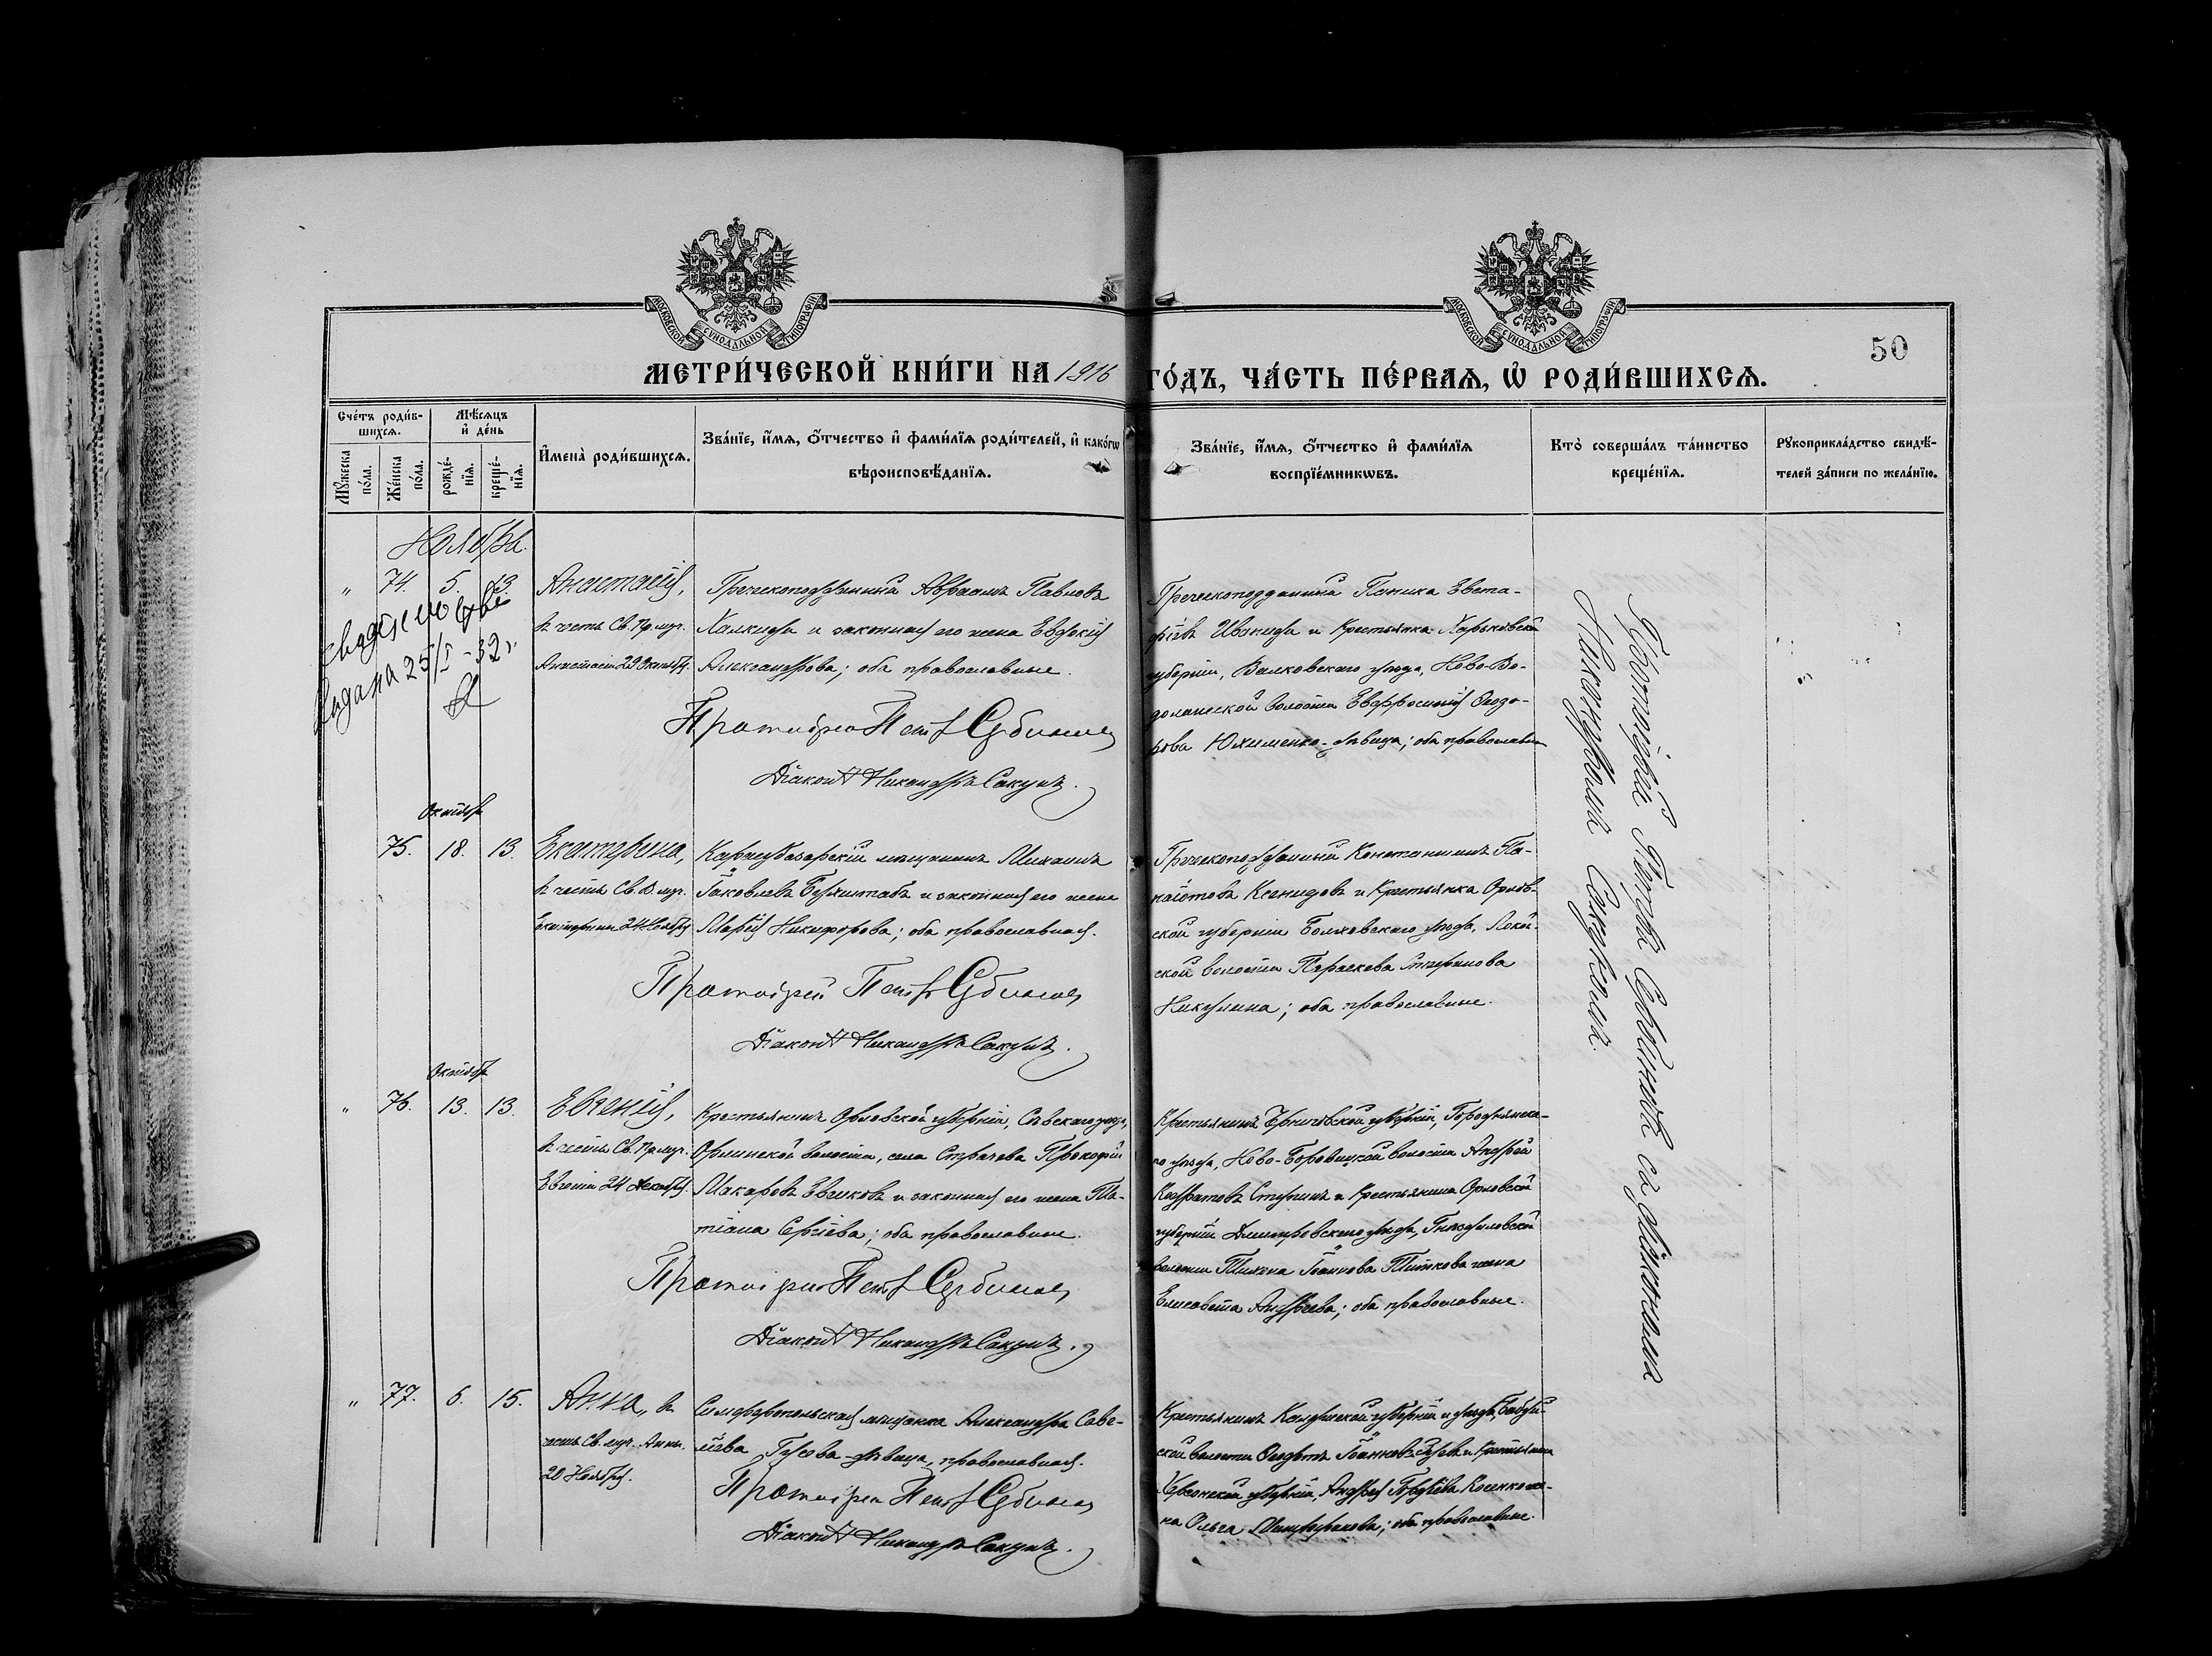 МОСКОВСКОЙ СУНОДАЛЬНОЙ ТИПОГРАФІИ
МОСКОВСКОЙ СУНОДАЛЬНОЙ ТИПОГРАФІИ
50
МЕТРИ́ЧЕСКОЙ КНИ́ГИ НА 1916 ГО́ДЪ, ЧА́СТЬ ПЕ́РВАѦ, Ѽ РОДИ́ВШИХСѦ.
Сче́тъ роди́в-
шихсѧ.
Мѣ́сѧцъ
и҆ де́нь
Мꙋ́жеска по́ла.
Же́нска по́ла.
рожде́-нїѧ.
креще́-нїѧ.
И҆мена̀ роди́вшихсѧ.
Зва́нїе, и҆́мѧ, ѻ҆́тчество и҆ фами́лїѧ роди́телей, и҆ како́гѡ
вѣроисповѣ́данїѧ.
Зва́нїе, и҆́мѧ, ѻ҆́тчество и҆ фами́лїѧ
воспрїе́мникѡвъ.
Кто̀ соверша́лъ та́инство
креще́нїѧ.
Рꙋкоприкла́дство свидѣ́-
телей за́писи по жела́нїю.
Ноябрь.
" 74. 5. 13.
Свидетельство
выдано 25/I - 32 г.
Анастасія,
въ честь Св. Пр. муч.
Анастасіи 29 Октября.
Греческоподданный Авраамъ Павловъ
Халкиди и законная его жена Евдокія
Александрова; оба православные.
Протоіерей Петръ Сербиновъ
Діаконъ Никандръ Сакунъ.
Греческоподданный Паника Евста-
фіевъ Ивакиди и Крестьянка Харьковской
губерніи, Валковскаго уѣзда, Ново-Во-
долажской волости Евфросинія Ѳеодо-
рова Юхименко-дѣвица; оба православные
Протоіерей Петръ Сербиновъ съ діакономъ
Никандромъ Сакуномъ.
Октября
75. 18. 13.
Екатерина,
въ честь Св. В. муч.
Екатерины 24 Ноября
Карасубазарскій мѣщанинъ Михаилъ
Іаковлевъ и законная его жена
Марія Никифорова; оба православные.
Протоіерей Петръ Сербиновъ
Діаконъ Никандръ Сакунъ.
Греческоподданный Константинъ Па-
наіотовъ Ксенидовъ и Крестьянка Орлов-
ской губерніи Болховскаго уѣзда,
ской волости Параскева Стефанова
Никулина; оба православные.
Октября
" 76. 13. 13.
Евгенія,
въ честь Св. Пр. муч.
Евгеніи 24 Декабря.
Крестьянинъ Орловской губерніи, Сѣвскаго уѣзда,
волости, села Страчева Прокофій
Макаровъ и законная его жена Та-
тіана Сергіева; оба православные.
Протоіерей Петръ Сербиновъ
Діаконъ Никандръ Сакунъ.
Крестьянинъ Черниговской губерніи, Городнянска-
го уѣзда, Ново-Боровицкой волости Андрей
Кодратовъ Ступинъ и Крестьянина Орловской
губерніи Дмитровскаго уѣзда, Гнѣздиловской
волости Тихона Іоаннова Титкова жена
Елисавета Андреева; оба православные.
" 77. 6. 15.
Анна, въ
честь Св. муч. Анны.
20 Ноября.
Симферопольская мѣщанка Александра Саве-
ліева Гусова-дѣвица, православная.
Протоіерей Петръ Сербиновъ
Діаконъ Никандръ Сакунъ.
Крестьянинъ губерніи и уѣзда,
ской волости Ѳеодотъ Іоанновъ и Крестьянина
Херсонской губерніи, Андрея Гордѣева Косенко же-
на Ольга Митрофанова; оба православные.